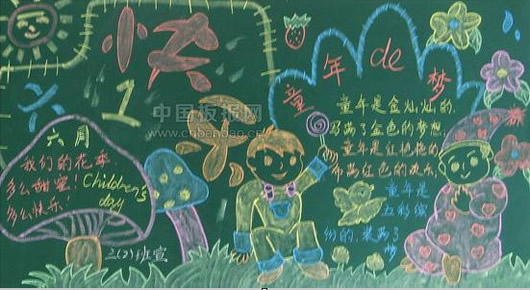 六
1
六月
我们的花季,
多么甜蜜!
多么快乐!
Children's
day
三(2)班宣
童年de梦
童年是金灿灿的,
写满了金色的梦想。
童年是红艳艳的
布满红色的欢乐。
童年是
五彩缤
纷的,装满了
中国板报网
www.cnbanbao.cn